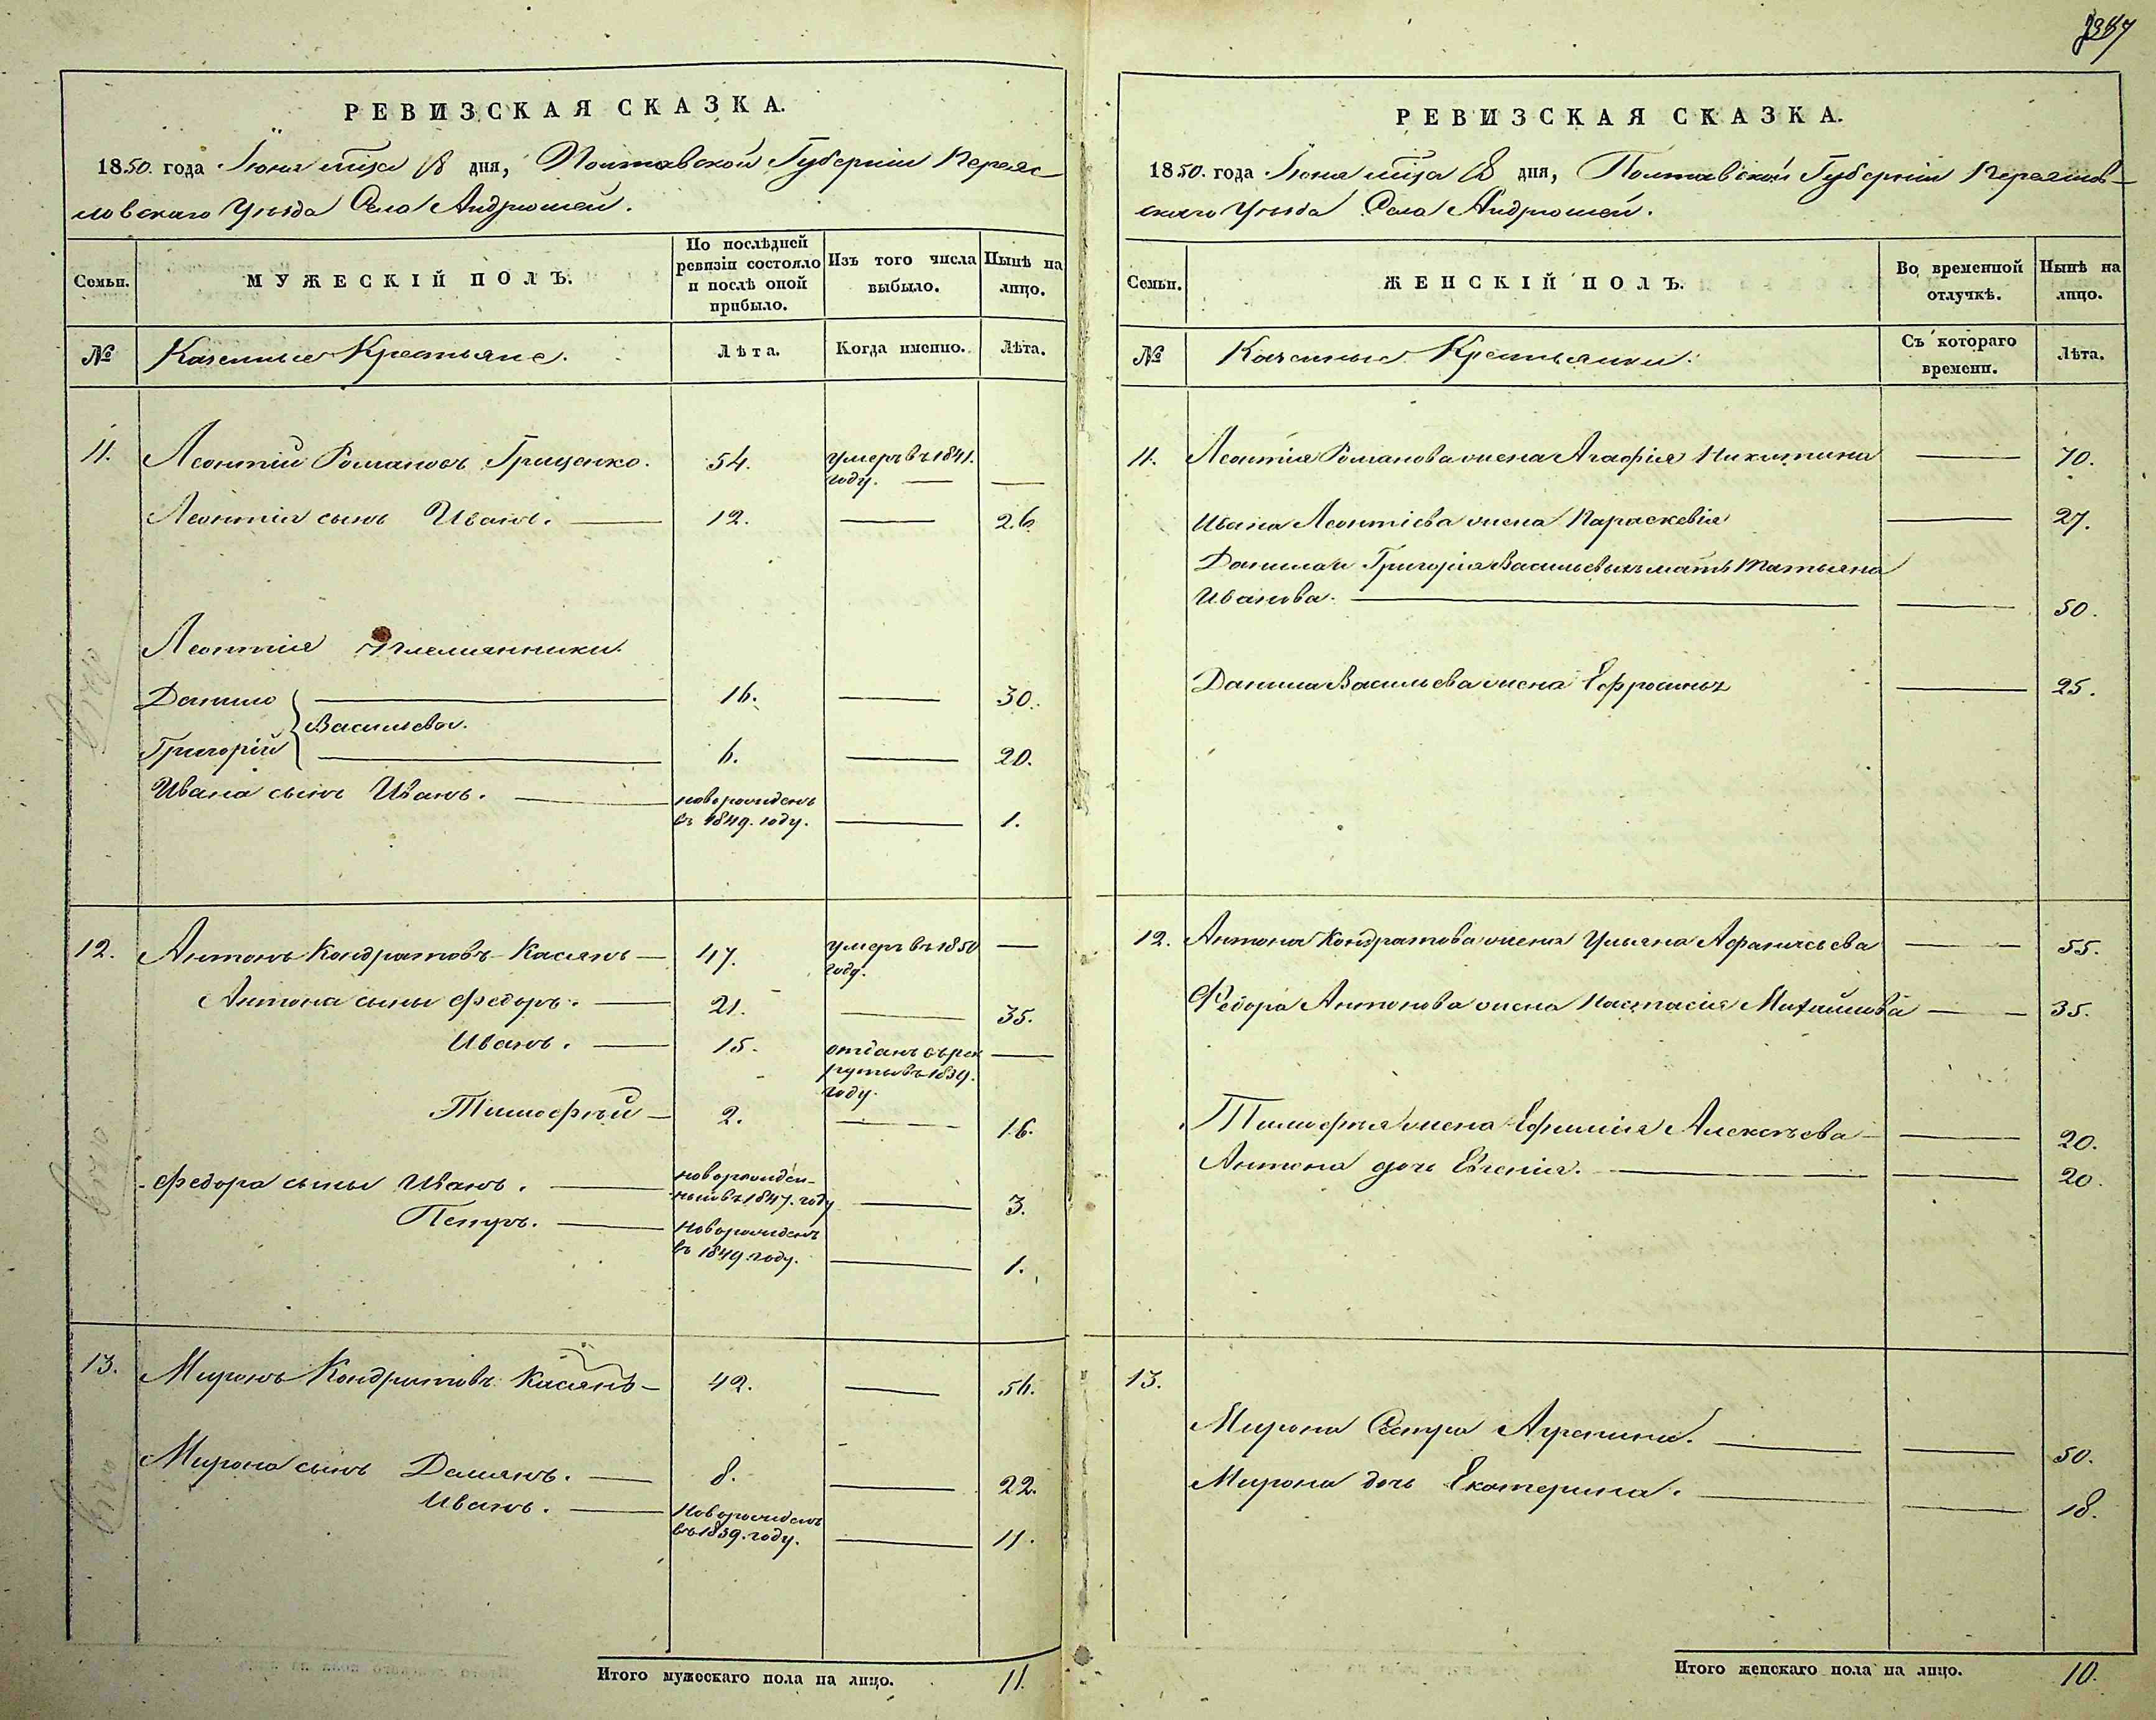 РЕВИЗСКАЯ СКАЗКА.
1850. года Іюня мца 8 дня, Полтавской Губерніи Переяс-
ловскаго Уѣзда Села Андрюшей.
Семьи.
МУЖЕСКІЙ ПОЛЪ.
По послѣдней
ревизіи состояло
и послѣ оной
прибыло.
Изъ того числа
выбыло.
Нынѣ на
лицо.
№
Казенные Крестьяне.
Лѣта.
Когда именно.
Лѣта.
11. Леонтій Романовъ Гриценко. 54. умеръ въ 1841.
году.
Леонтія сынъ Иванъ. 12. 26
Леонтія племянники
Данило 16. 30.
Васильевы.
Григорій 6. 20.
Ивана сынъ Иванъ. новорожденъ
въ 1849. году. 1.
12. Антонъ Кондратовъ Касянъ 47. умеръ въ 1850
году.
Антона сыны Федоръ. 21. 35.
Иванъ. 15. отданъ въ рек
руты въ 1839.
году.
Тимофѣй 2. 16.
Федора сыны Иванъ. новорожден-
ный въ 1847. году 3.
Петръ. Новорожденъ
въ 1849. году. 1.
13. Миронъ Кондратовъ Касянъ 42. 56.
Мирона сынъ Демянъ. 8. 22.
Иванъ. Новорожденъ
въ 1839. году. 11.
Итого мужескаго пола на лицо. 11.
РЕВИЗСКАЯ СКАЗКА.
1850. года Іюня мца 8 дня, Полтавской Губерніи Переяслов-
скаго Уѣзда Села Андрюшей.
Семьи.
ЖЕНСКІЙ ПОЛЪ.
Во временной
отлучкѣ.
Нынѣ на
лицо.
№
Казенные Крестьянки.
Съ котораго
времени.
Лѣта.
11. Леонтія Романова жена Агафія Никитина 70.
Ивана Леонтіева жена Параскевія 27.
Данила и Григорія Васильевыхъ мать Татьяна
Иванова. 50.
Данила Васильева жена Ефросинья 25.
12. Антона Кондратова жена Ульяна Афанасьева 55.
Федора Антонова жена Настасія Михайлова 35.
Тимофѣя жена Ефимія Алексѣева 20.
Антона дочь Евгенія. 20.
13.
Мирона Сестра Агрепина. 50.
Мирона дочь Екатерина. 18.
Итого женскаго пола на лицо. 10.